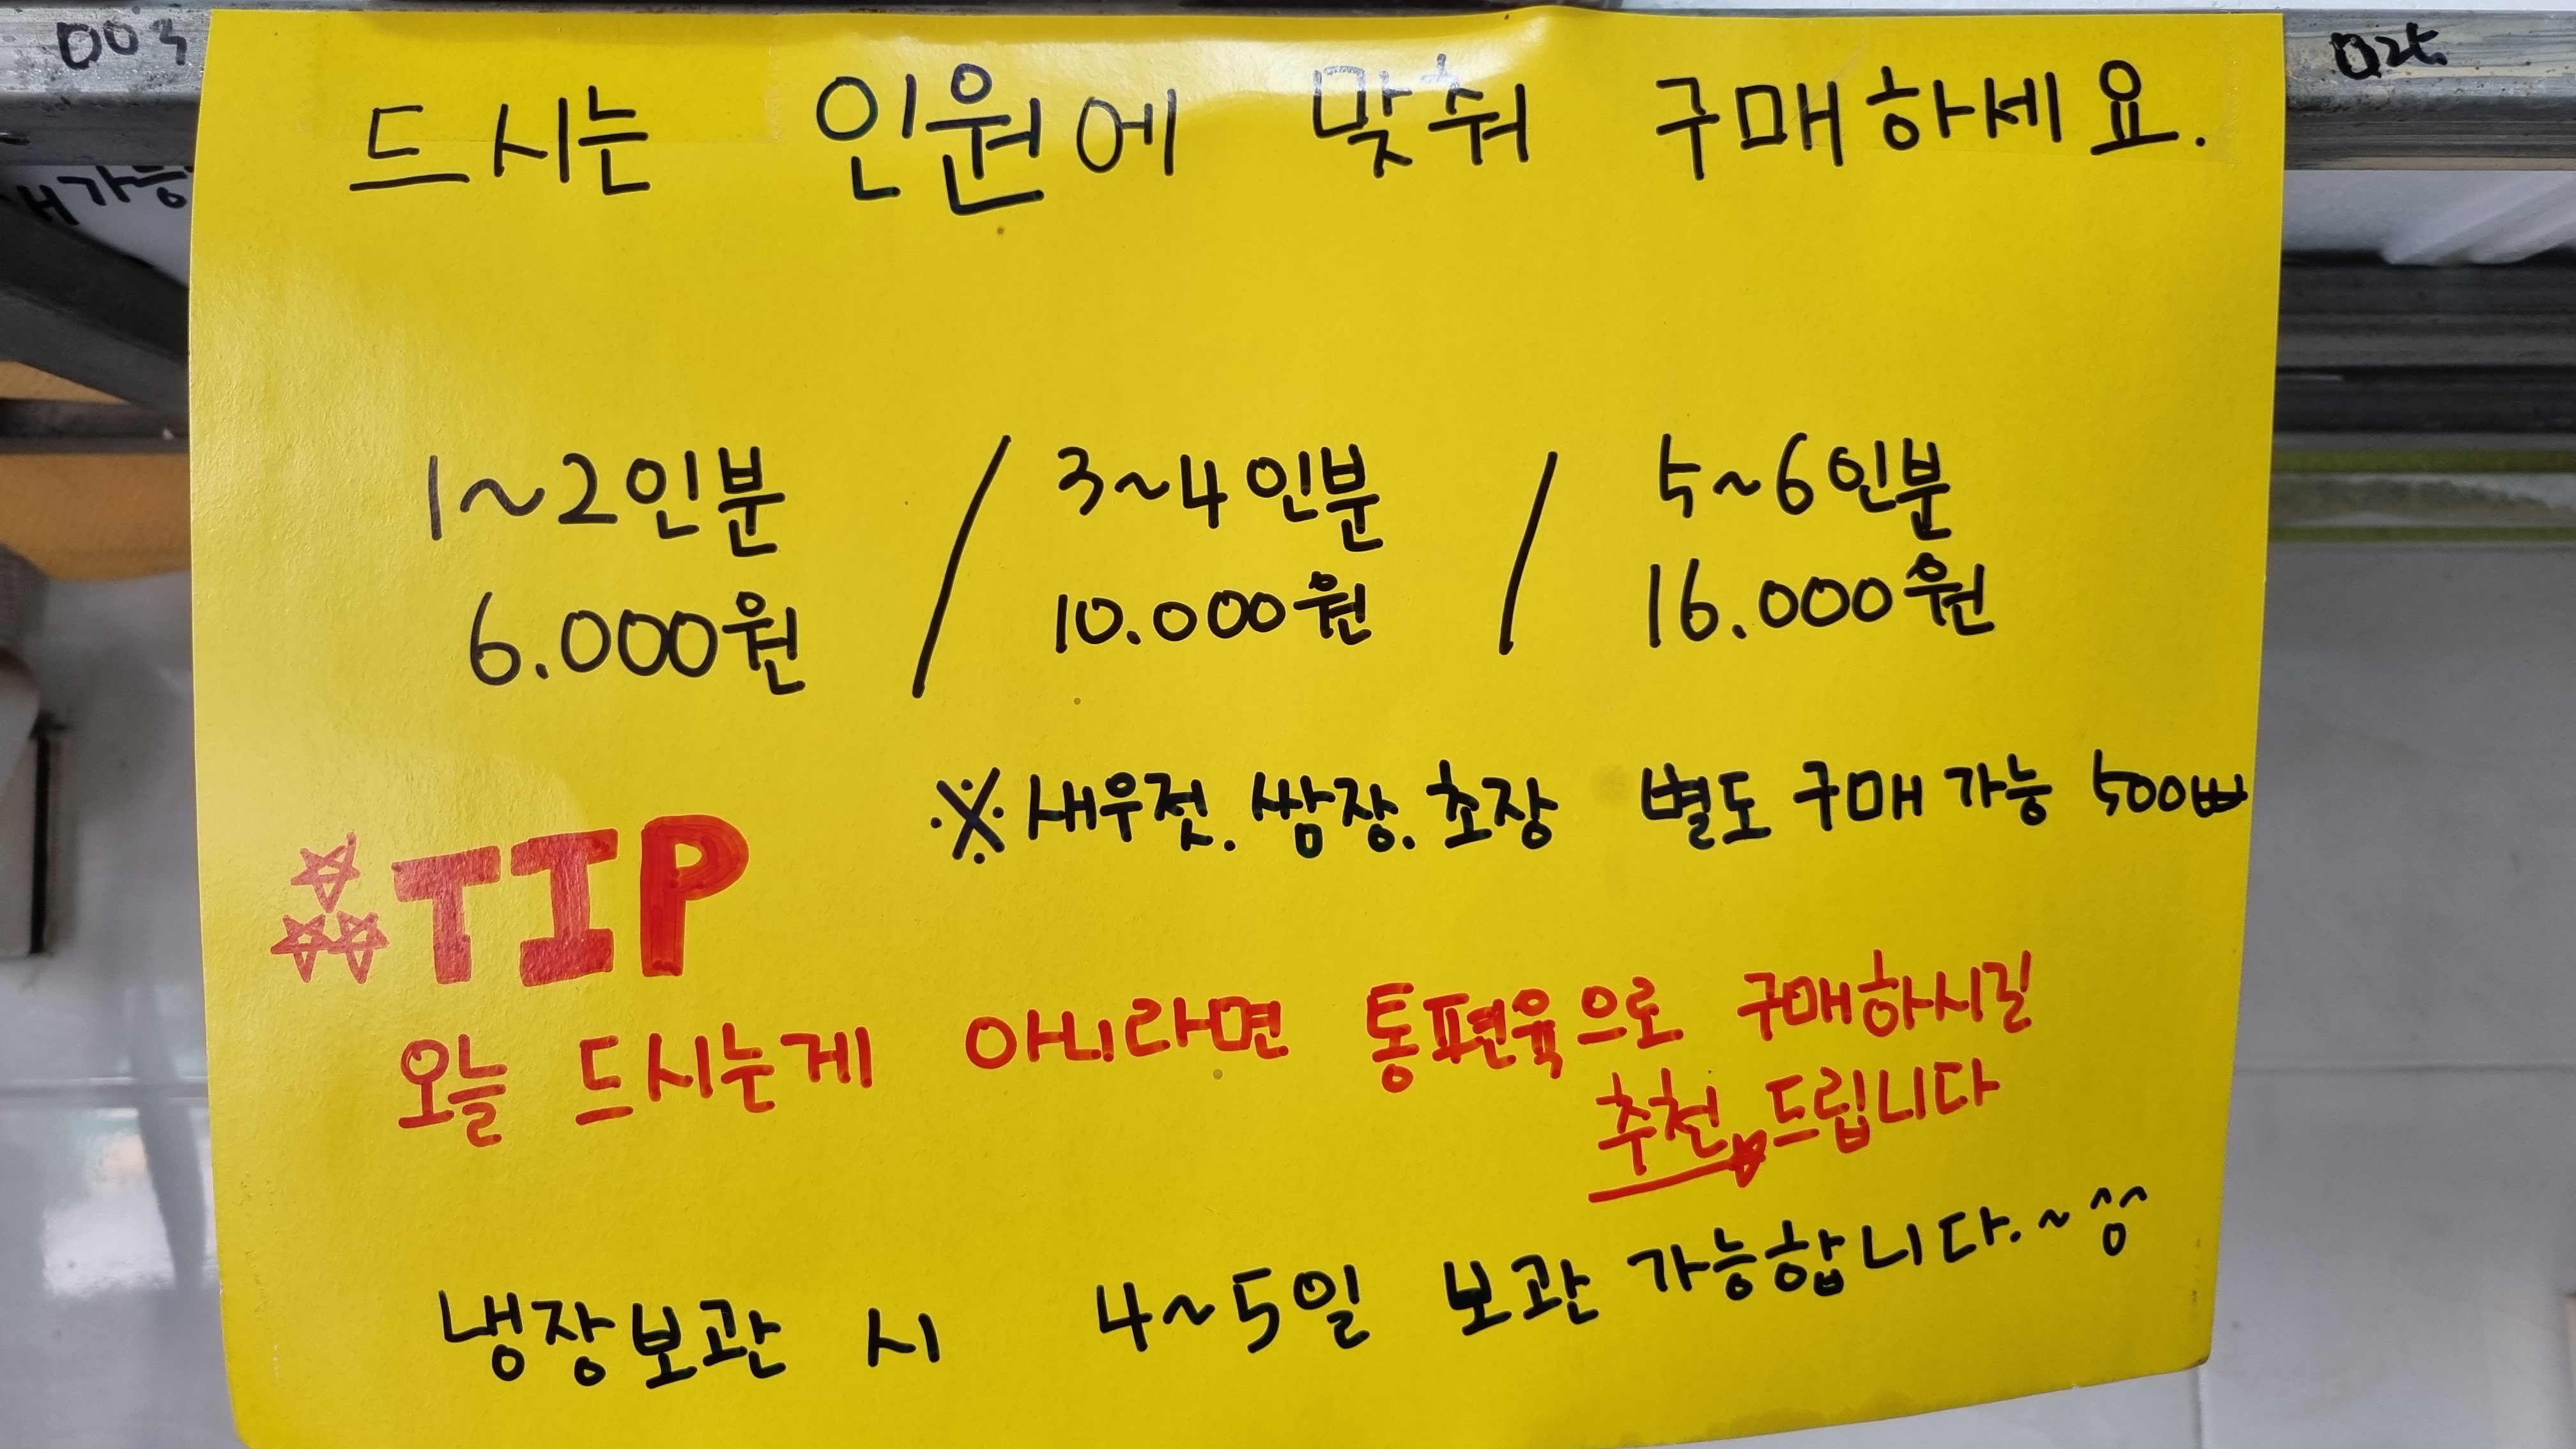 드시는 인원에 맞춰 구매하세요.
1~2인분 / 3~4인분 / 5~6인분
6.000원 10.000원 16.000원
※새우젓.쌈장.초장 별도 구매 가능 500
TIP
오늘 드시는게 아니라면 통편육으로 구매하시길
추천 드립니다
냉장보관 시 4~5일 보관 가능합니다.~^^